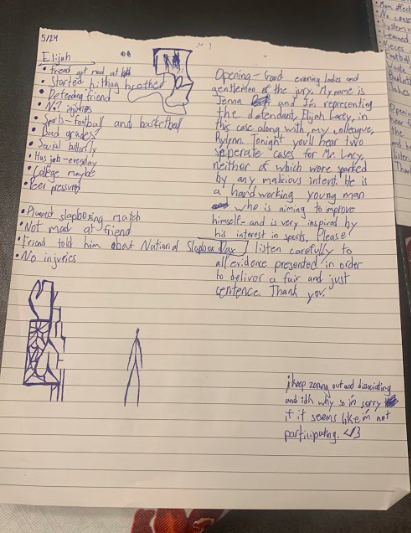 5/24
Elijah
• friend got mad at
• Started hitting brother
• Defending friend
• No injuries
• Sports-football and basketball
• Good grades?
• Social butterfly
• Has job-everyday
• College maybe
• Peer pressured
• Planned slapboxing match
• Not mad at friend
• Friend told him about National Slapbox Day
• No injuries
Opening- Good evening ladies and
gentlemen of the jury. My name is
Jenna and I'm representing
the defendant, Elijah Lacy, in
this case along with my colleague,
Tonight you'll hear two
seperate cases for Mr. Lacy,
neither of which were sparked
by any malicious intent. He is
a hard working young man
who is aiming to improve
himself- and is very inspired by
his interest in sports. Please
listen carefully to
all evidence presented in order
to deliver a fair and just
sentence. Thank you.
i keep zoning out and dissociating
and idk why so im sorry
if it seems like im not
participating. </3